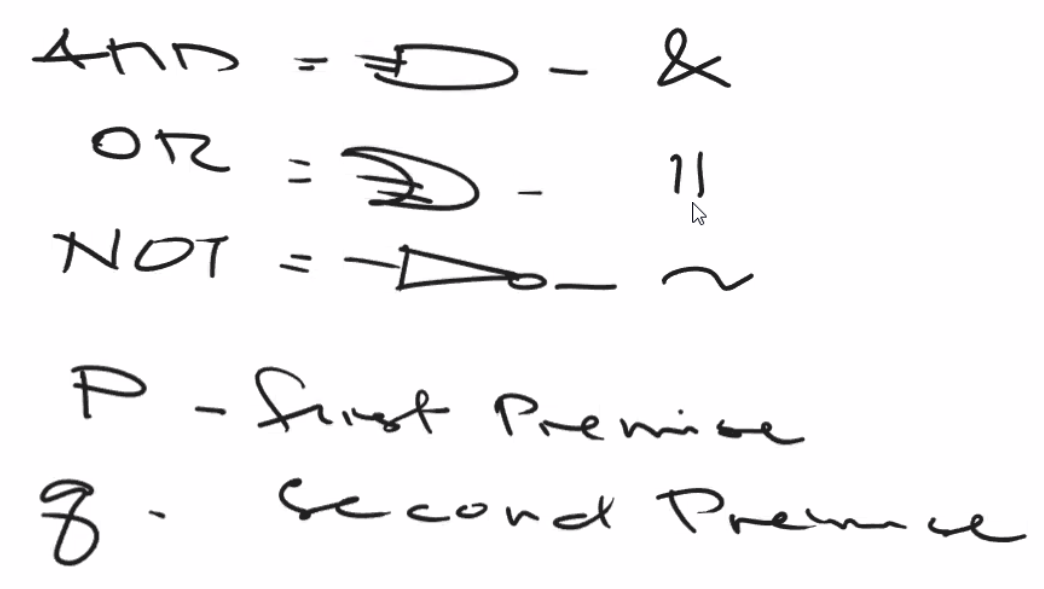 AND = - &
OR = - ||
NOT = - ~
P - first Premise
q - Second Premise